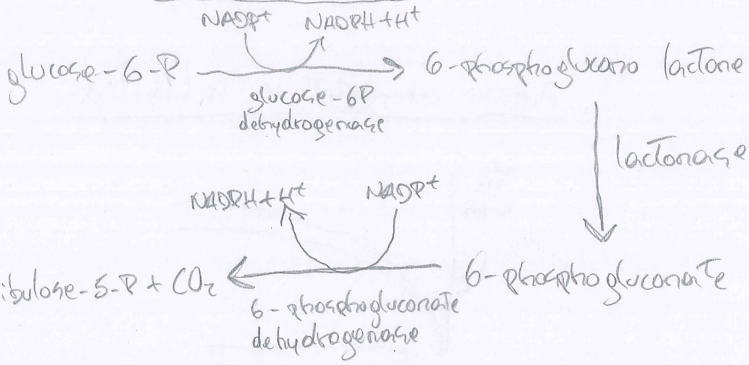 NADP+ NADPH+H+
glucose-6-P 6-phosphoglucono lactone
glucose-6P
dehydrogenase
lactonase
NADPH+H+ NADP+
ibulose-5-P + CO2 6-phosphogluconate
6-phosphogluconate
dehydrogenase